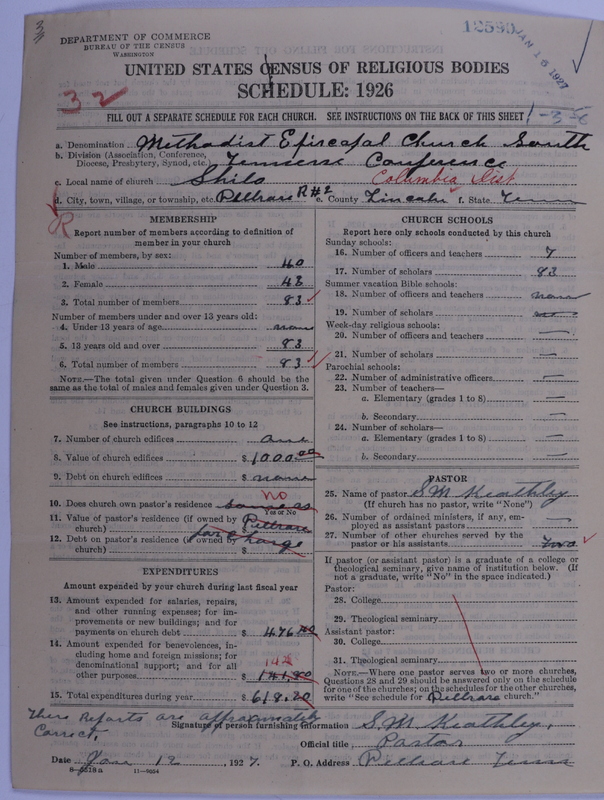 DEPARTMENT OF COMMERCE
BUREAU OF THE CENSUS
WASHINGTON
12590
JAN 18 1927
UNITED STATES CENSUS OF RELIGIOUS BODIES
SCHEDULE: 1926
32
FILL OUT A SEPARATE SCHEDULE FOR EACH CHURCH. SEE INSTRUCTIONS ON THE BACK OF THIS SHEET
a. Denomination Methodist Episcopal Church South
b. Division (Association, Conference, Diocese, Presbytery, Synod, etc.) Tennessee Conference
c. Local name of church Shilo Columbia Dist
d. City, town, village, or township, etc. Petersburg R#2 e. County Lincoln f. State Tenn
MEMBERSHIP
Report number of members according to definition of
member in your church
Number of members, by sex:
1. Male 40
2. Female 43
3. Total number of members 83
Number of members under and over 13 years old:
4. Under 13 years of age none
5. 13 years old and over 83
6. Total number of members 83
NOTE.—The total given under Question 6 should be the
same as the total of males and females given under Question 3.
CHURCH BUILDINGS
See instructions, paragraphs 10 to 12
7. Number of church edifices one
8. Value of church edifices $ 1000.00
9. Debt on church edifices $ none
no
10. Does church own pastor's residence same as
Yes or No
11. Value of pastor's residence (if owned by church) $
12. Debt on pastor's residence (if owned by church) $ charge
EXPENDITURES
Amount expended by your church during last fiscal year
13. Amount expended for salaries, repairs,
and other running expenses; for im-
provements or new buildings; and for
payments on church debt $ 476.00
14. Amount expended for benevolences, in-
cluding home and foreign missions; for
denominational support; and for all
142
other purposes $
15. Total expenditures during year $ 618.20
CHURCH SCHOOLS
Report here only schools conducted by this church
Sunday schools:
16. Number of officers and teachers 7
17. Number of scholars 83
Summer vacation Bible schools:
18. Number of officers and teachers none
19. Number of scholars
Week-day religious schools:
20. Number of officers and teachers —
21. Number of scholars —
Parochial schools:
22. Number of administrative officers —
23. Number of teachers—
a. Elementary (grades 1 to 8) —
b. Secondary —
24. Number of scholars—
a. Elementary (grades 1 to 8) —
b. Secondary —
PASTOR
25. Name of pastor S M Keathley
(If church has no pastor, write "None")
26. Number of ordained ministers, if any, em-
ployed as assistant pastors —
27. Number of other churches served by the
pastor or his assistants two
If pastor (or assistant pastor) is a graduate of a college or
theological seminary, give name of institution below. (If
not a graduate, write "No" in the space indicated.)
Pastor:
28. College
29. Theological seminary
Assistant pastor:
30. College
31. Theological seminary
NOTE.—Where one pastor serves two or more churches,
Questions 28 and 29 should be answered only on the schedule
for one of the churches; on the schedules for the other churches,
write "See schedule for church."
These Reports are approximately
Correct,
Signature of person furnishing information S. M. Keathley,
Official title Pastor
Date Jan 12, 1927. P. O. Address Tenn
8—6518a 11—9054